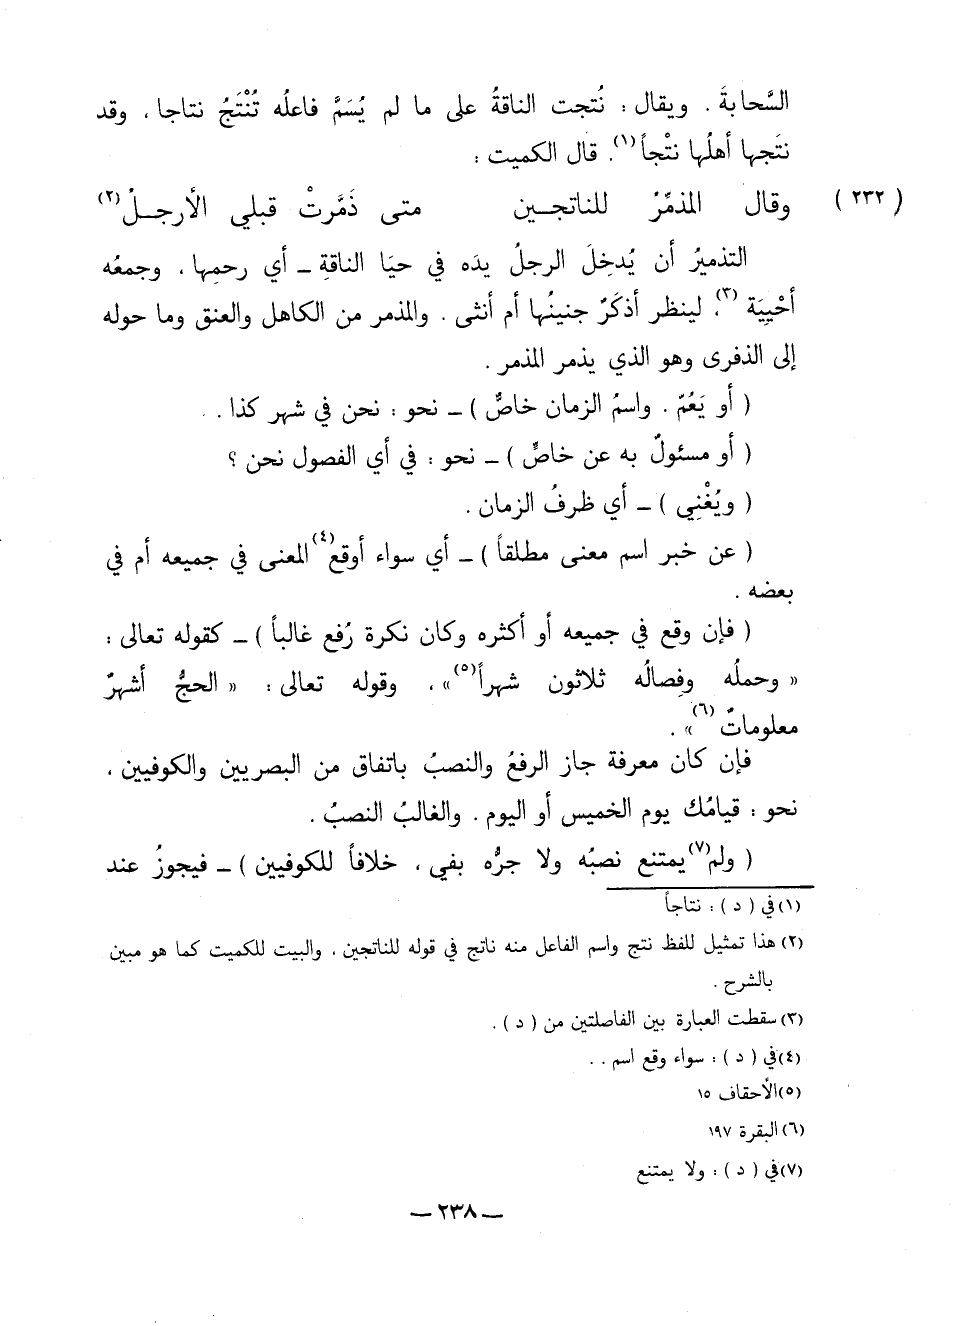 السَّحابةَ . ويقال : نُتجت الناقةُ على ما لم يُسَمَّ فاعلُه تُنْتَجُ نتاجا ، وقد
نتَجها أهلُها نتْجاً(١). قال الكميت :
(٢٣٢) وقال المذمِّرُ للناتجـين متى ذَمَّرتْ قبلي الأرجـلُ(٢)
التذميرُ أن يُدخِلَ الرجلُ يدَه في حيَا الناقةِ ـ أي رحمِها ، وجمعُه
أحْيِيَة (٣)، لينظر أذكَرٌ جنينُها أم أنثى . والمذمر من الكاهل والعنق وما حوله
إلى الذفرى وهو الذي يذمر المذمر .
( أو يَعُمّ . واسمُ الزمان خاصٌّ ) ـ نحو : نحن في شهر كذا . .
( أو مسئولٌ به عن خاصٍّ ) ـ نحو : في أي الفصول نحن ؟
( ويُغْنِي ) ـ أي ظرفُ الزمان .
( عن خبر اسم معنى مطلقاً ) ـ أي سواء أوقع(٤) المعنى في جميعه أم في
بعضه .
( فإن وقع في جميعه أو أكثره وكان نكرة رُفع غالباً ) ـ كقوله تعالى :
« وحملُه وفِصالُه ثلاثون شهراً(٥)» ، وقوله تعالى : « الحجُّ أشهرٌ
معلوماتٌ (٦)» .
فإن كان معرفة جاز الرفعُ والنصبُ باتفاق من البصريين والكوفيين ،
نحو : قيامُك يوم الخميس أو اليوم . والغالبُ النصبُ .
( ولم(٧) يمتنع نصبُه ولا جرُّه بفي ، خلافاً للكوفيين ) ـ فيجوزُ عند
(١) في ( د ) : نتاجاً
(٢) هذا تمثيل للفظ نتج واسم الفاعل منه ناتج في قوله للناتجين ، والبيت للكميت كما هو مبين
بالشرح .
(٣) سقطت العبارة بين الفاصلتين من ( د ) .
(٤) في ( د ) : سواء وقع اسم . .
(٥) الأحقاف ١٥
(٦) البقرة ١٩٧
(٧) في ( د ) : ولا يمتنع
ـ ٢٣٨ ـ